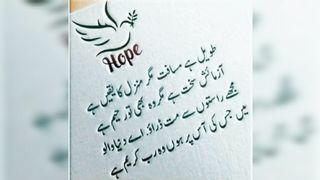 Hope
طویل ہے مسافت مگر منزل کا یقین ہے
آزمائش سخت ہے مگر وہ بھی تو رحیم ہے
مجھے راستوں سے مت ڈراؤ اے دنیا والو
میں جس کی آس پر ہوں وہ رب کریم ہے